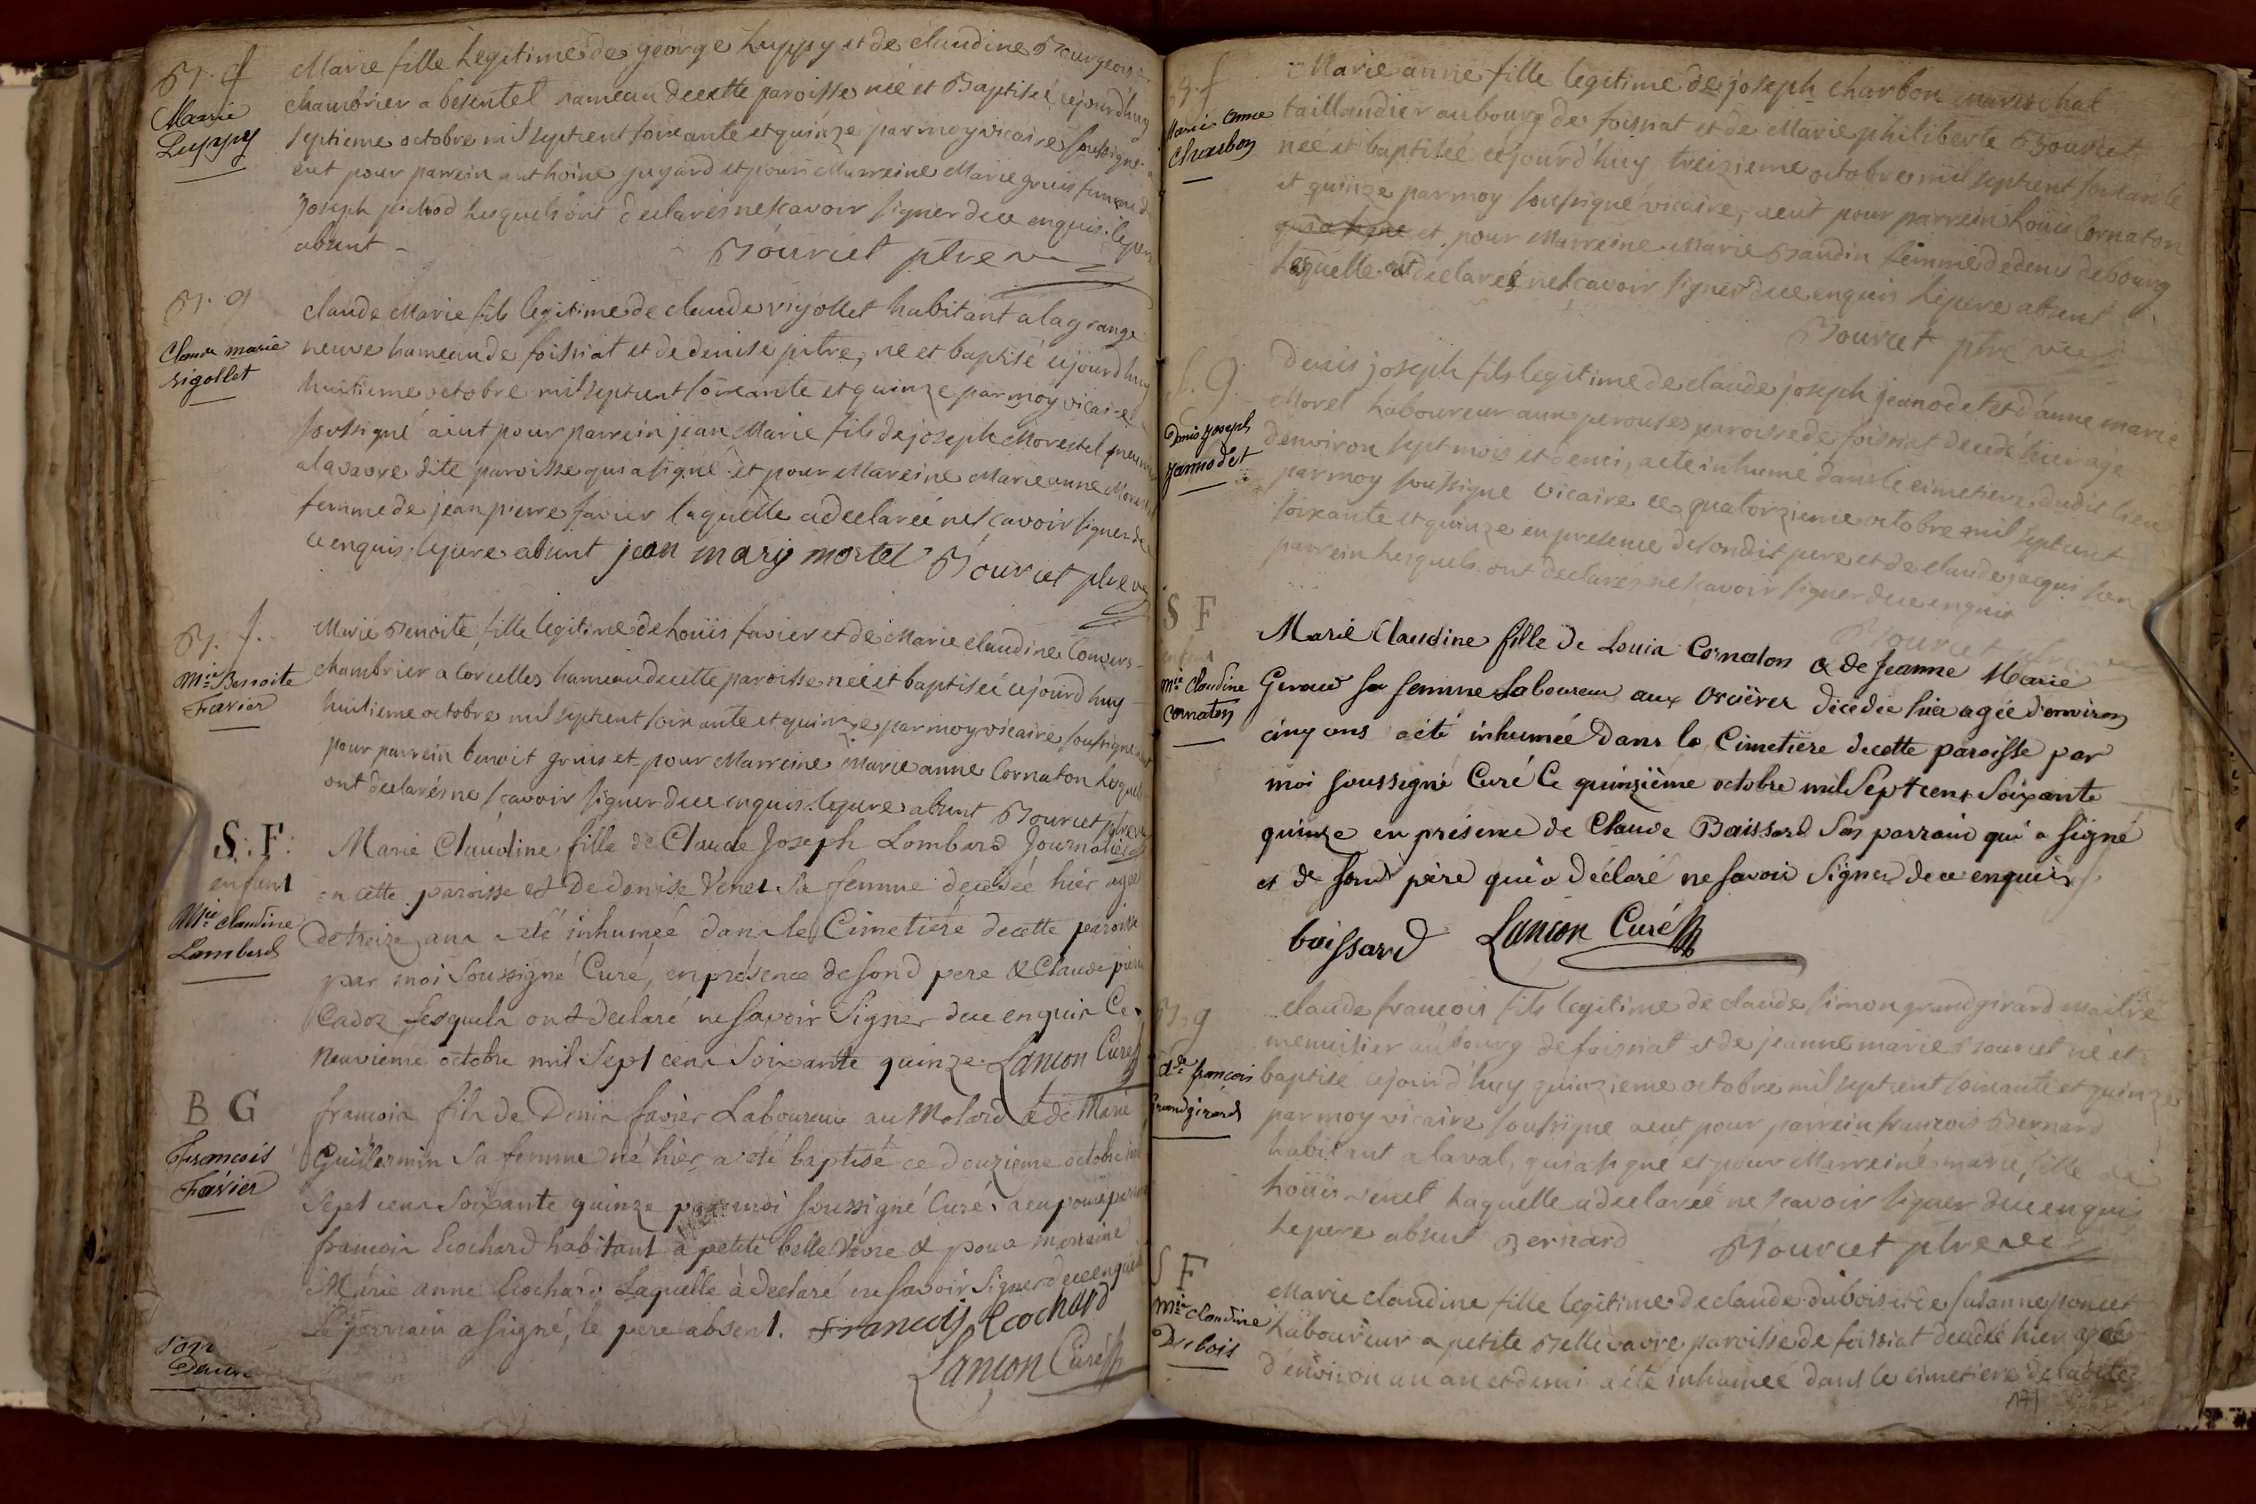 B. f
Marie
Luppy
Marie fille legitime de george Luppy et de claudine Bourgeois
chambrier a besentel hameau decette paroisse née et Baptisée cejourd'huy
septieme octobre mil septcent soixante et quinze par moy vicaire soussigné
eut pour parrein anthoine jugard et pour Marreine Marie gruis femme de
Joseph pichod lesquels ont declarés ne scavoir signer de ce enquis. le pere
absent -
Bourcet ptre
B. g
Claude marie
rigollet
Claude Marie fils legitime de claude rigollet habitant a la grange
neuve hameau de foissiat et de denise pitre, né et baptisé cejourd'huy
huitieme octobre mil septcent soixante et quinze par moy vicaire
soussigné aeut pour parrein jean Marie fils de joseph Morestel
a lavavre dite paroisse qui a signé et pour Mareine Marie anne
femme de jean pierre favier laquelle a declarée ne scavoir signer de
ce enquis. le pere absent jean mary mortel Bourcet ptre
B. f.
Mie Benoite
Favier
Marie Benoite fille legitime de Louis favier et de Marie claudine Convers
chambrier a Corcelles hameau decette paroisse née et baptisée cejourd'huy
huitieme octobre mil septcent soixante et quinze par moy vicaire soussigné
pour parrein benoit gruis et pour Marreine Marie anne Cornaton
ont declarés ne scavoir signer de ce enquis. le pere absent Bourcet ptre
S. F.
enfant
Mie claudine
Lombard
Marie Claudine fille de Claude Joseph Lombard Journalier
en cette paroisse et De denise Venet Sa femme decedée hier agée
de treize ans a été inhumée dans le Cimetiere decette paroisse
par moi Soussigné Curé, en présence de sond pere & Claude pierre
Cadoz Lesquels ont declaré ne savoir Signer de ce enquis Ce
Neuvième octobre mil Sept cens Soixante quinze Lancon Curé
B G
François
Favier
francois fils de Denis favier Laboureur au Molard & de Marie
Guillermin Sa femme né hier a été baptisé ce douzieme octobre mil
Sept cens Soixante quinze par moi soussigné Curé, a eu pour parrain
francois Ecochard habitant à petite belle Vavre & pour marraine
Marie anne Ecochard Laquelle à declaré ne savoir Signer de ce enquis
Le parrain a signé, le pere absent. Francois Ecochard
Lancon Curé
B. f
Marie anne
Charbon
Marie anne fille legitime de joseph charbon marechal
taillandier au bourg de foissiat et de Marie philiberte Bourcet
née et baptisée cejourd'huy treizieme octobre mil septcent soixante
et quinze par moy soussigné vicaire, aeut pour parrein Louis Cornaton
qui a signé et pour Marreine Marie Baudin femme de denis debourg
Laquelle a declareé ne scavoir signer de ce enquis le pere absent
Bourcet ptre vic
S. G.
Denis joseph
jannodet
denis joseph fils legitime de claude joseph jeanodet et d'anne marie
Morel Laboureur aux perouses paroisse de foissiat decedé hier age
d'environ sept mois et demi, a ete inhumé dans le cimetiere dudit lieu
par moy soussigné vicaire ce quatorzieme octobre mil septcent
soixante et quinze en presence de sondit pere et de claude jacquis son
parrein lesquels ont declarés ne scavoir signer de ce enquis
Bourcet ptre
S F
enfant
Mie Claudine
Cornaton
Marie Claudine fille de Louis Cornaton & de Jeanne Marie
Geraud sa femme Laboureur aux Orcières décédée hier agée d'environ
cinq ans a été inhumée Dans le Cimetière decette paroisse par
moi soussigné Curé Ce quinzième octobre mil Sept cens Soixante
quinze en présence de Claude Boissard Son parrain qui a signé
et de Sond père qui a déclaré ne savoir Signer de ce enquis
boissard Lancon Curé
B. g
Cde françois
Grandgirard
claude francois fils legitime de claude simon grandgirard maitre
menuisier au bourg de foissiat et de jeanne marie Bourcet né et
baptisé cejourd'huy quinzieme octobre mil septcent soixante et quinze
par moy vicaire soussigné aeut pour parrein francois Bernard
habitant a laval, qui a signé et pour Marreine marie fille de
Louis venet Laquelle a declareé ne scavoir signer de ce enquis
le pere absent Bernard Bourcet ptre vic
S F
Mie Claudine
Dubois
Marie claudine fille legitime de claude dubois et de susanne poncet
Laboureur a petite Bellevavre paroisse de foissiat decedée hier agée
d'environ un an et demi a été inhumée dans le cimetiere de ladite
171